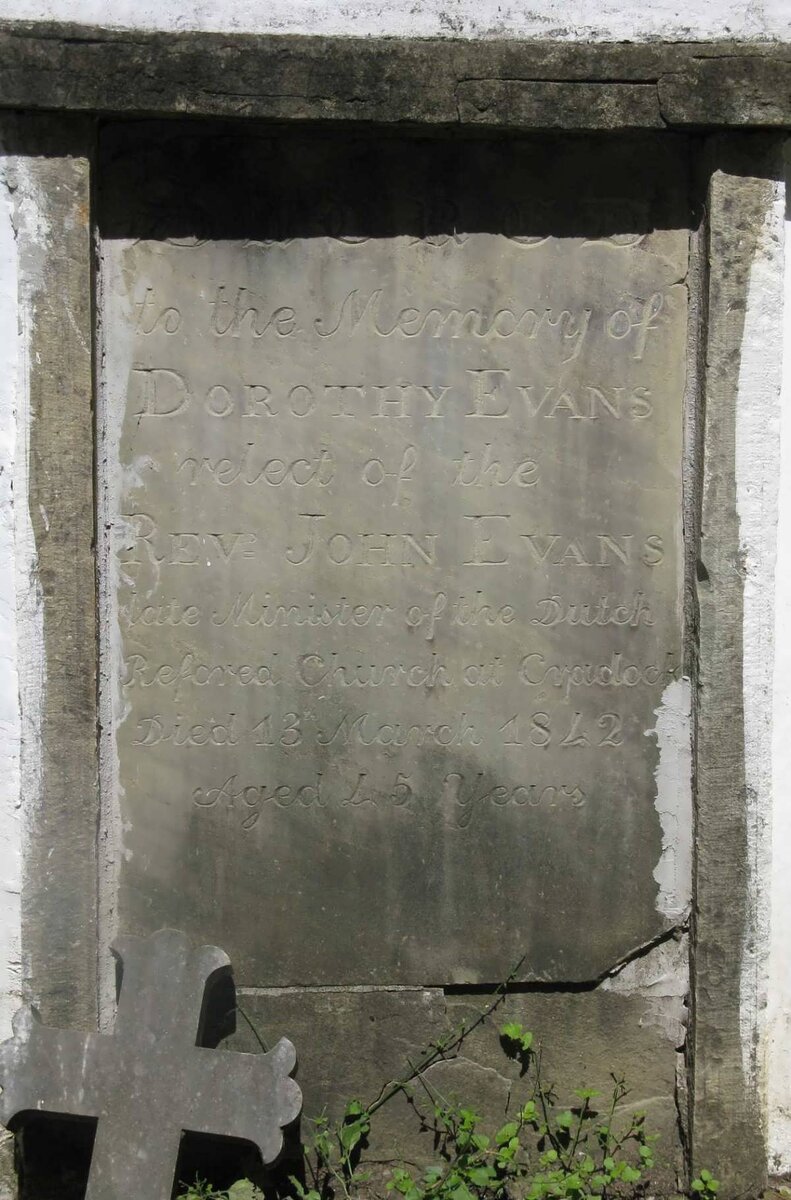 SACRED
to the Memory of
DOROTHY EVANS
relect of the
REVD. JOHN EVANS
late Minister of the Dutch
Refored Church at Crpidock
Died 13th March 1842
Aged 45 Years